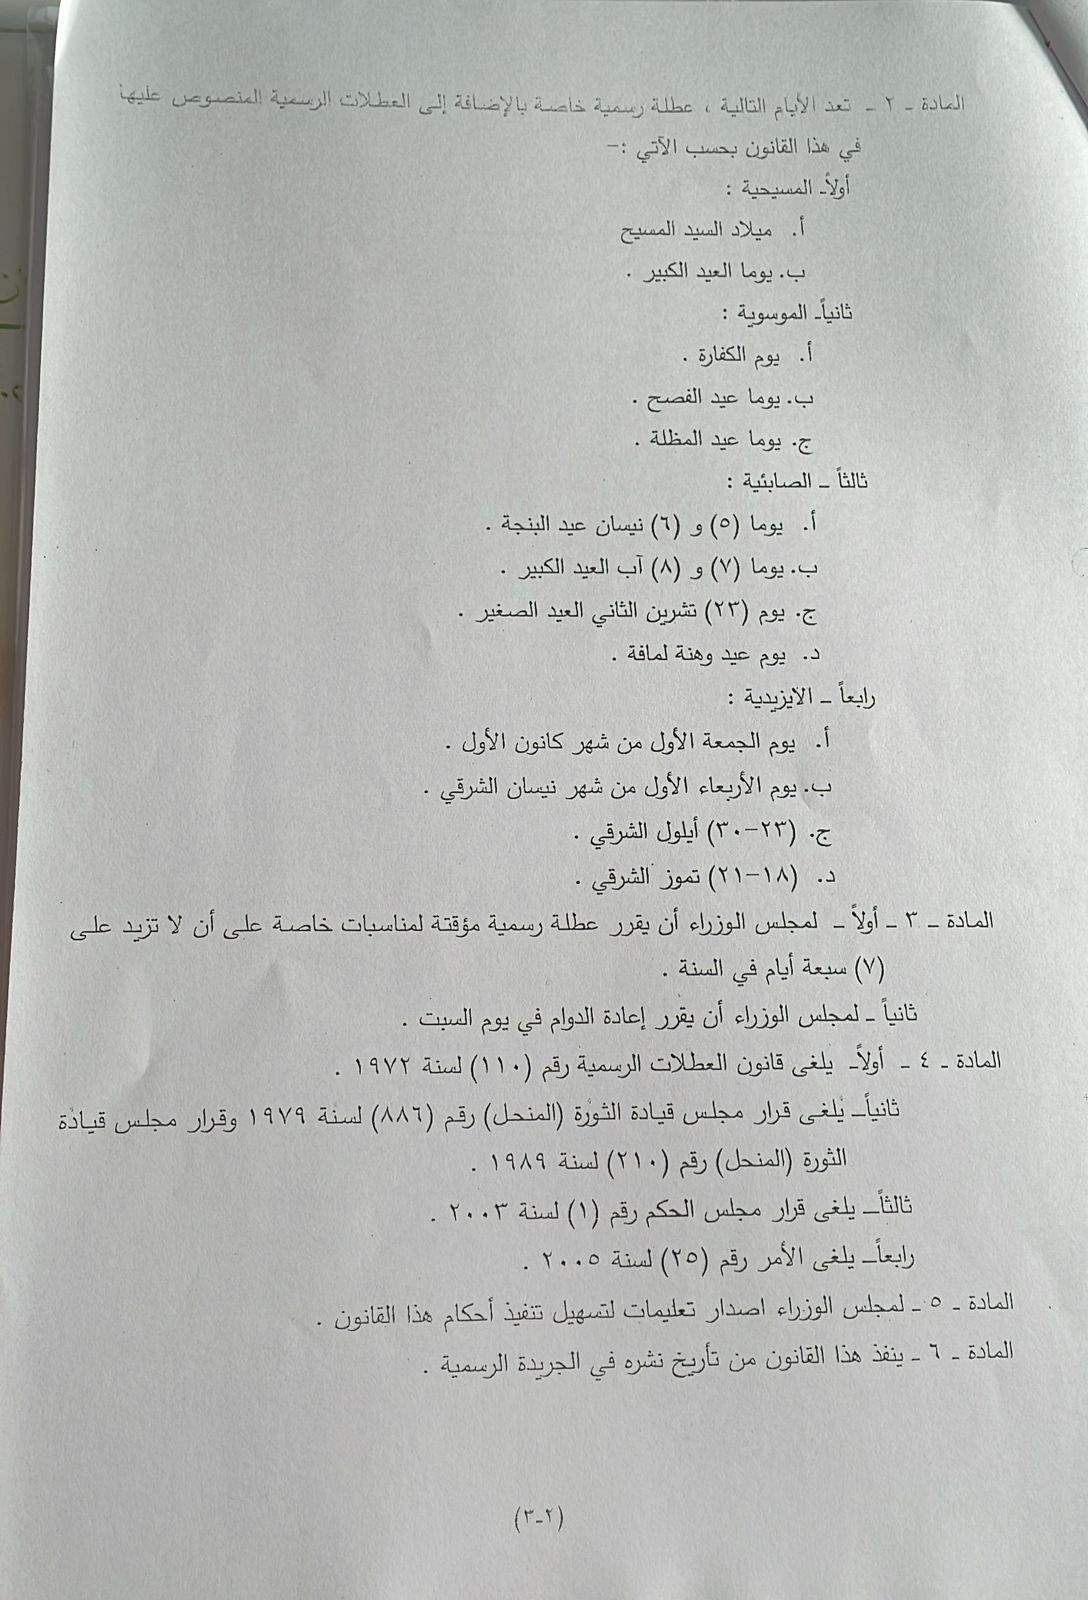 المادة ـ ٢ ـ تعد الأيام التالية ، عطلة رسمية خاصة بالإضافة إلى العطلات الرسمية المنصوص عليها
في هذا القانون بحسب الآتي :–
أولاًـ المسيحية :
أ. ميلاد السيد المسيح
ب. يوما العيد الكبير .
ثانياًـ الموسوية :
أ. يوم الكفارة .
ب. يوما عيد الفصح .
ج. يوما عيد المظلة .
ثالثاً ـ الصابئية :
أ. يوما (٥) و (٦) نيسان عيد البنجة .
ب. يوما (٧) و (٨) آب العيد الكبير .
ج. يوم (٢٣) تشرين الثاني العيد الصغير .
د. يوم عيد وهنة لمافة .
رابعاً ـ الايزيدية :
أ. يوم الجمعة الأول من شهر كانون الأول .
ب. يوم الأربعاء الأول من شهر نيسان الشرقي .
ج. (٢٣–٣٠) أيلول الشرقي .
د. (١٨–٢١) تموز الشرقي .
المادة ـ ٣ ـ أولاً ـ لمجلس الوزراء أن يقرر عطلة رسمية مؤقتة لمناسبات خاصة على أن لا تزيد على
(٧) سبعة أيام في السنة .
ثانياً ـ لمجلس الوزراء أن يقرر إعادة الدوام في يوم السبت .
المادة ـ ٤ ـ أولاًـ يلغى قانون العطلات الرسمية رقم (١١٠) لسنة ١٩٧٢ .
ثانياًـ يُلغى قرار مجلس قيادة الثورة (المنحل) رقم (٨٨٦) لسنة ١٩٧٩ وقرار مجلس قيادة
الثورة (المنحل) رقم (٢١٠) لسنة ١٩٨٩ .
ثالثاًـ يلغى قرار مجلس الحكم رقم (١) لسنة ٢٠٠٣ .
رابعاًـ يلغى الأمر رقم (٢٥) لسنة ٢٠٠٥ .
المادة ـ ٥ ـ لمجلس الوزراء اصدار تعليمات لتسهيل تنفيذ أحكام هذا القانون .
المادة ـ ٦ ـ ينفذ هذا القانون من تأريخ نشره في الجريدة الرسمية .
(٢-٣)